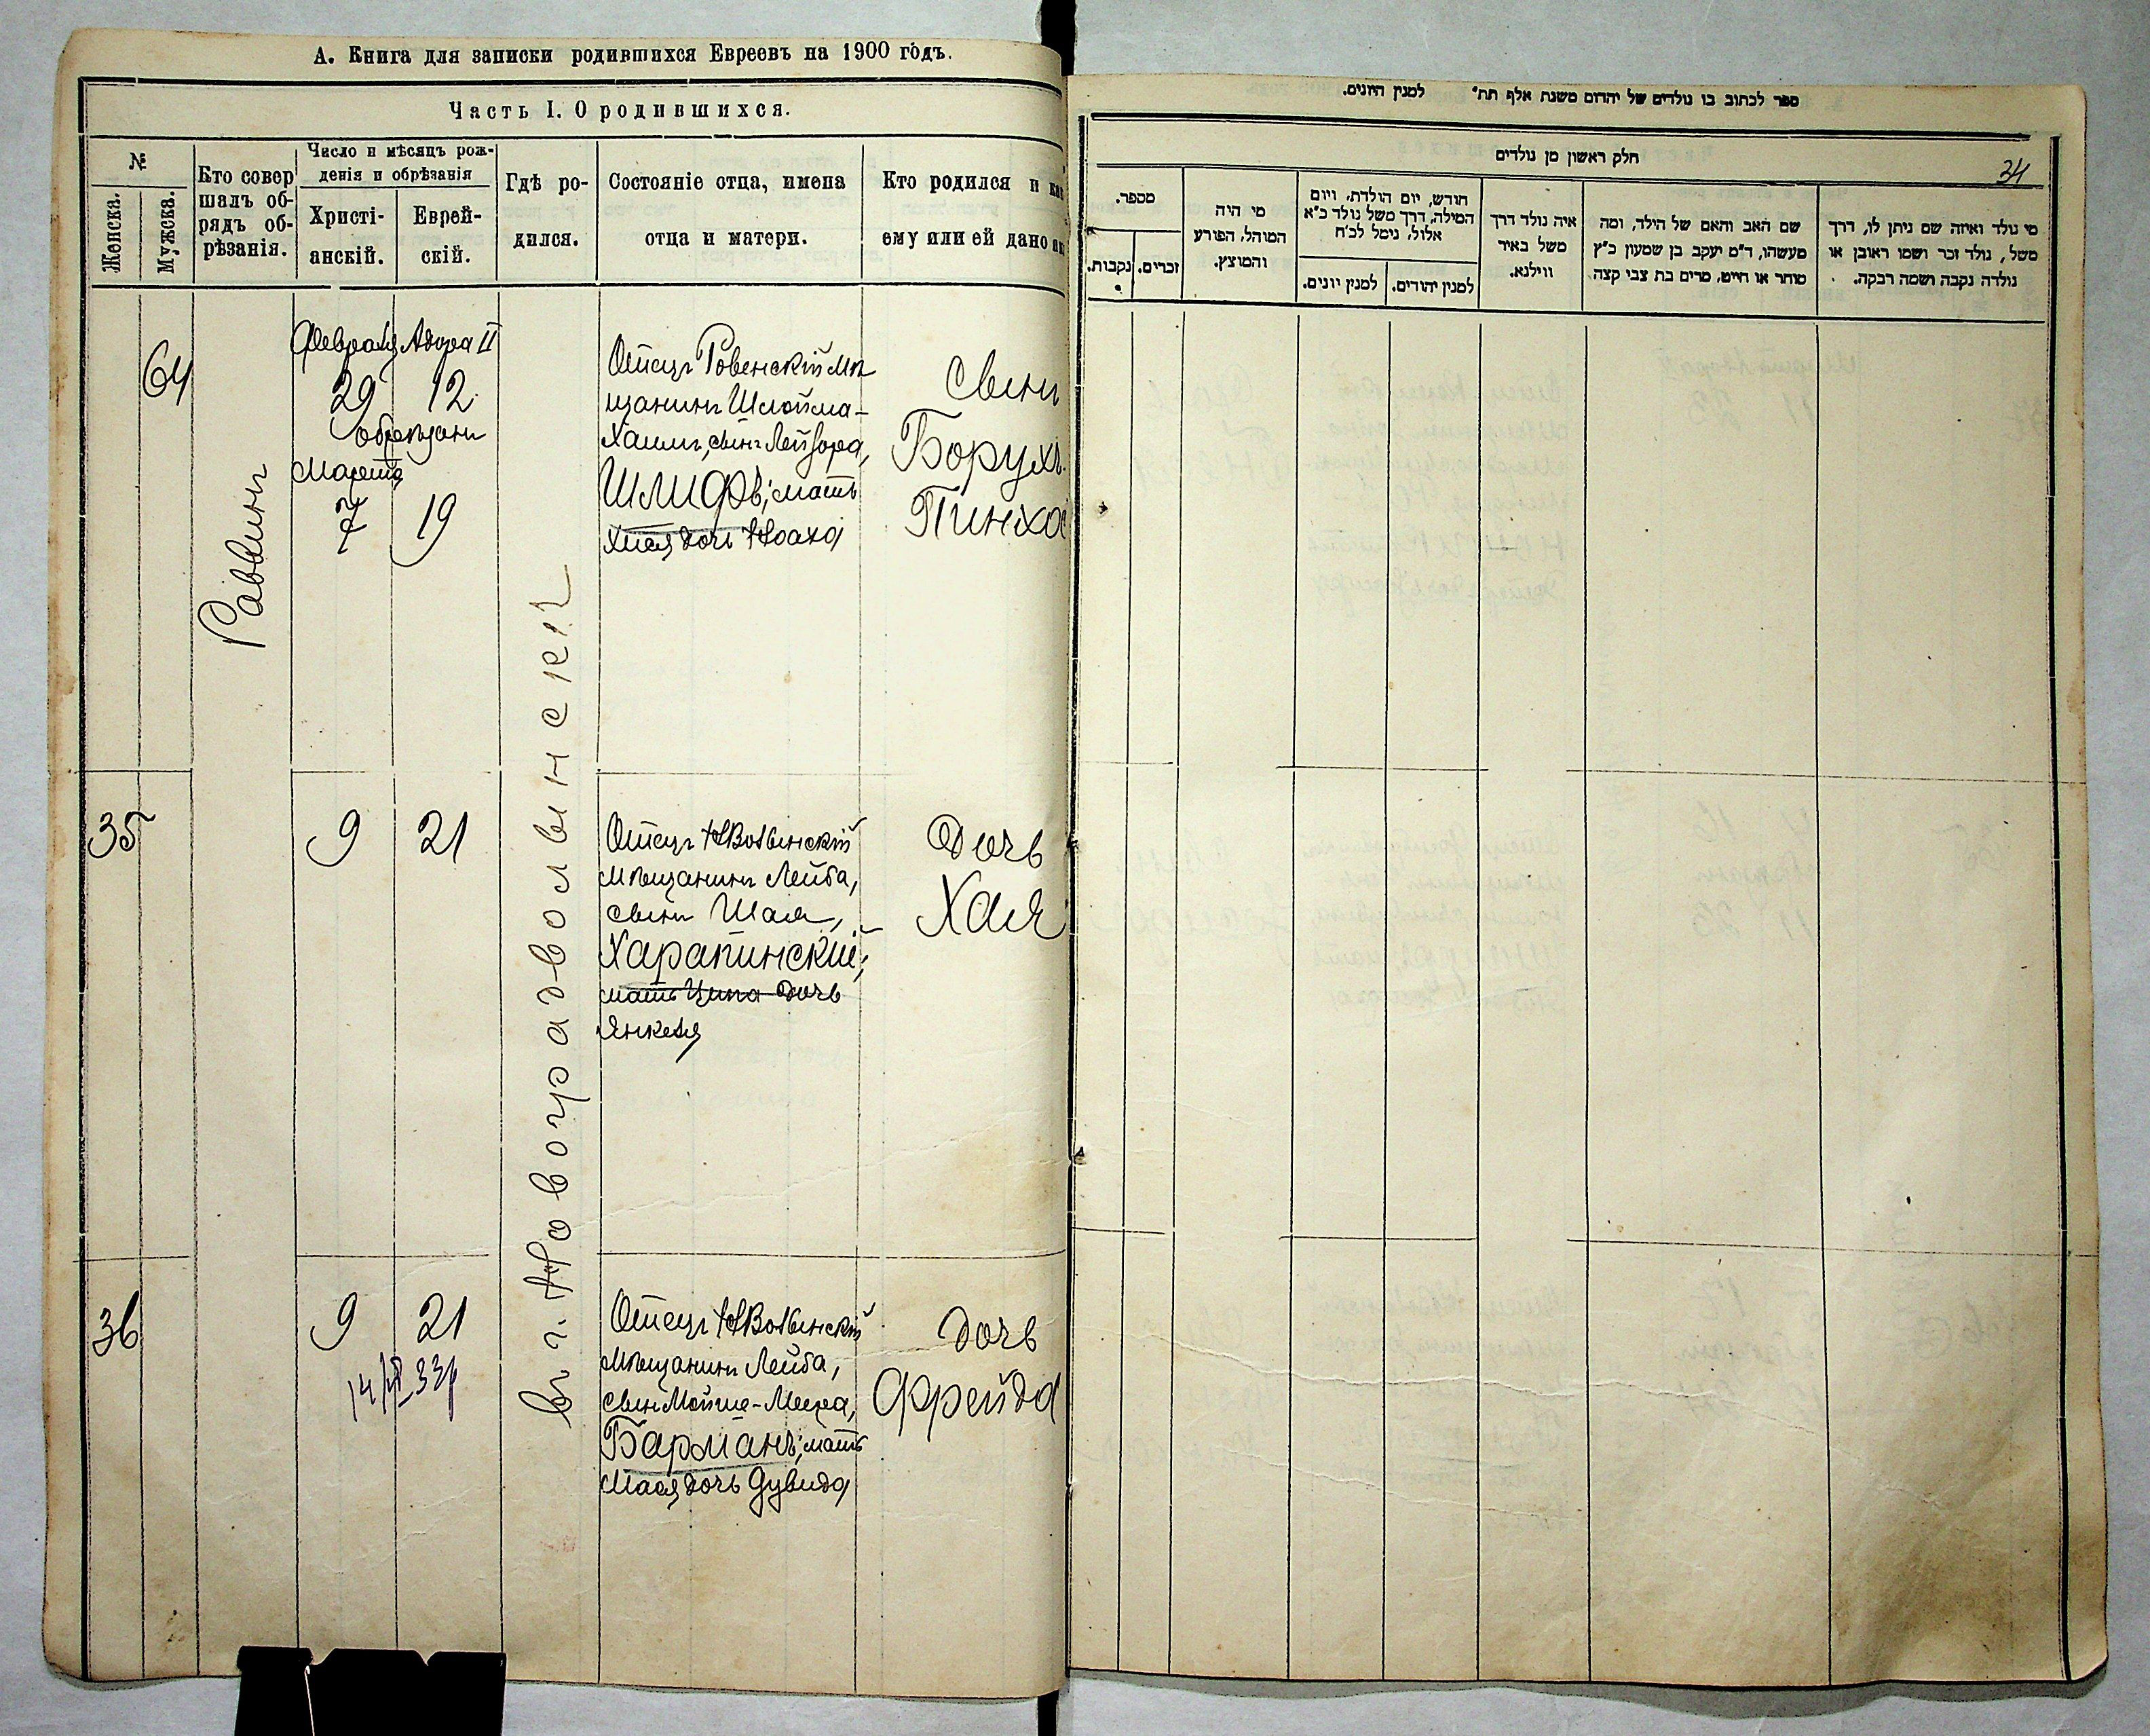 А. Книга для записки родившихся Евреевъ на 1900 годъ.
Часть I. О родившихся.
№
Женска.
Мужска.
Кто совер
шалъ об-
рядъ об-
рѣзанія.
Число и мѣсяцъ рож-
денія и обрѣзанія
Христі-
анскій.
Еврей-
скій.
Гдѣ ро-
дился.
Состояніе отца, имена
отца и матери.
Кто родился и как
ему или ей дано
64
Раввинъ
Февраля Адора II
29 12
обрѣзанъ
Марта
7 19
въ г. Новоградволынскѣ
Отецъ Ровенскій мѣ
щанинъ Шлойма-
Хаимъ, сынъ Лейзора,
Шлифъ; мать
Хися дочь Ноаха
Сынъ
Борухъ
Пинхас
35
9 21
Отецъ НВолынскій
мѣщанинъ Лейба,
сынъ Шаи,
Харапинскій;
мать Ципа дочь
Янкеля
Дочь
Хая
36
9 21
14/II 33р
Отецъ НВолынскій
мѣщанинъ Лейба,
сынъ Мойше-Меера,
Барманъ; мать
Мася дочь Дувида
Дочь
Фрейда
ספר לכתוב בו נולדים של יהדום משנת אלף תת״ למנין היונים.
חלק ראשון מן נולדים
34
מספר.
נקבות.
זכרים.
מי היה
המוהל, הפורע
והמוצץ.
חודש, יום הולדת, ויום
המילה, דרך משל נולד כ״א
אלול, נימל לכ״ח
למנין יונים.
למנין יהודים.
איה נולד דרך
משל באיר
ווילנא.
שם האב והאם של הילד, ומה
מעשהו, ד״מ יעקב בן שמעון כ״ץ
סוחר או חייט, מרים בת צבי קצה.
מי נולד ואיזה שם ניתן לו, דרך
משל, נולד זכר ושמו ראובן או
נולדה נקבה ושמה רבקה.